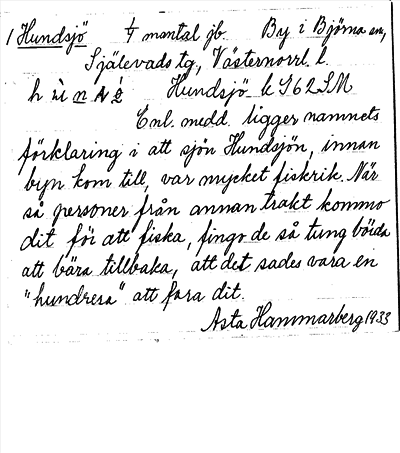 1 Hundsjö 1/4 mantal jb. By i Björna sn,
Själevads tg, Västernorrl. l.
Hundsjö k S 62 S M
Enl. medd. ligger namnets
förklaring i att sjön Hundsjön, innan
byn kom till, var mycket fiskrik. När
så personer från annan trakt kommo
dit för att fiska, fingo de så tung börda
att bära tillbaka, att det sades vara en
"hundresa" att fara dit.
Asta Hammarberg 1933